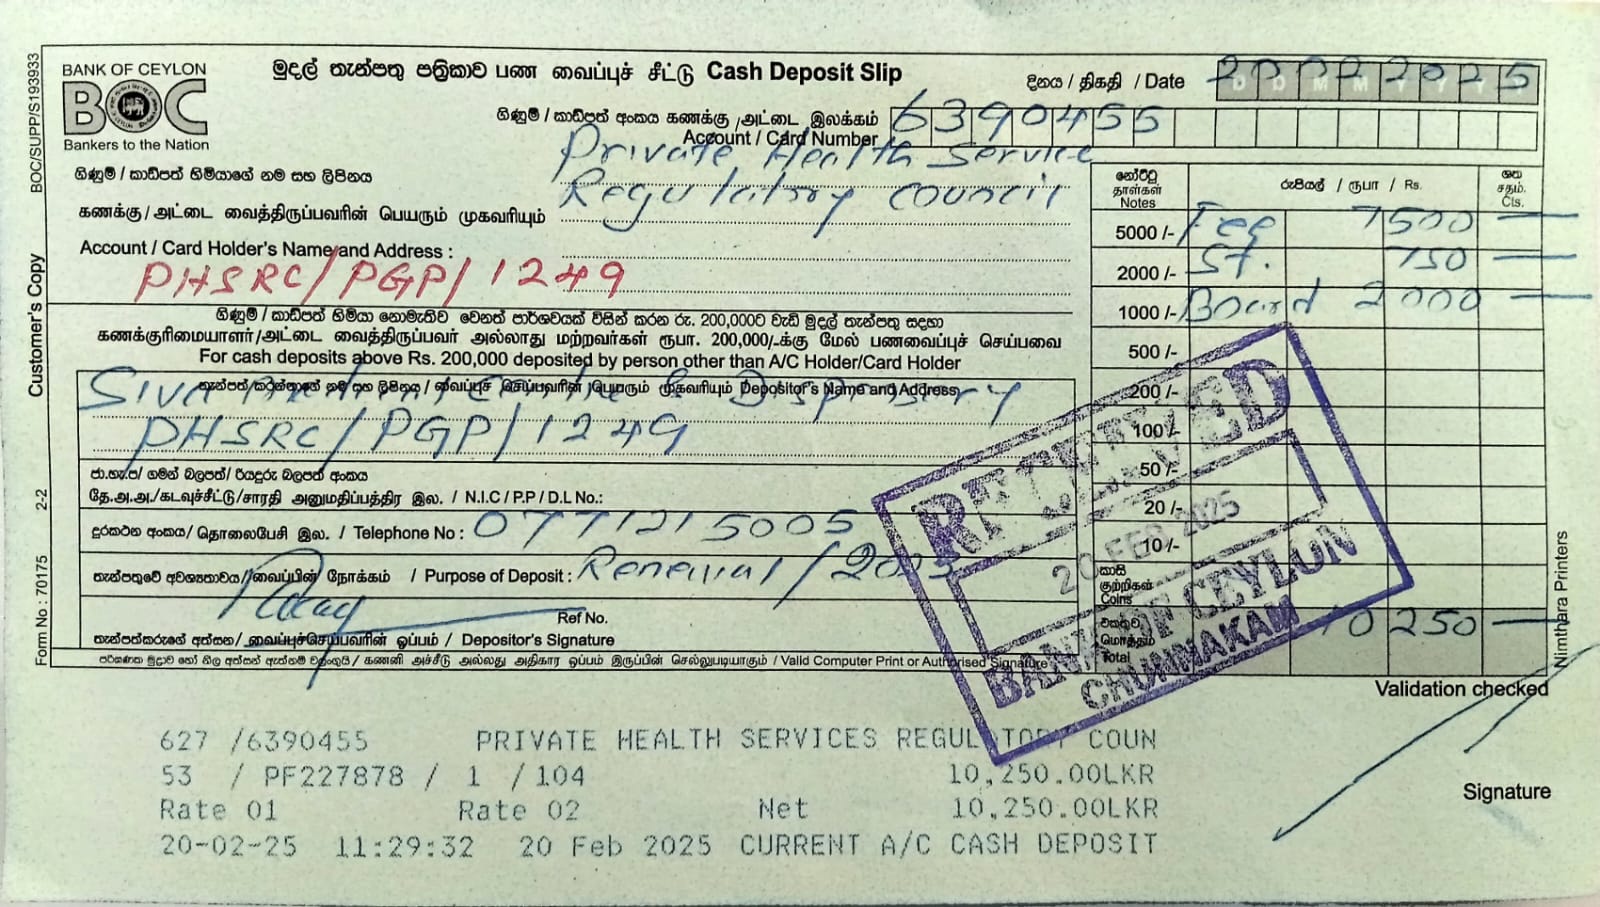 BANK OF CEYLON
BOC
Bankers to the Nation
මුදල් තැන්පතු පත්‍රිකාව பண வைப்புச் சீட்டு Cash Deposit Slip
දිනය / திகதி / Date 20 02 2025
ගිණුම් / කාඩ්පත් අංකය கணக்கு / அட்டை இலக்கம்
Account / Card Number 6390455
Private Health Service
ගිණුම් / කාඩ්පත් හිමියාගේ නම සහ ලිපිනය
Regulatory Council
கணக்கு / அட்டை வைத்திருப்பவரின் பெயரும் முகவரியும்
Account / Card Holder's Name and Address :
PHSRC/PGP/1249
ගිණුම් / කාඩ්පත් හිමියා නොමැතිව වෙනත් පාර්ශවයක් විසින් කරන රු. 200,000ට වැඩි මුදල් තැන්පතු සඳහා
கணக்குரிமையாளர்/அட்டை வைத்திருப்பவர் அல்லாது மற்றவர்கள் ரூபா. 200,000/-க்கு மேல் பணவைப்புச் செய்பவை
For cash deposits above Rs. 200,000 deposited by person other than A/C Holder/Card Holder
තැන්පත් කරන්නාගේ නම සහ ලිපිනය / வைப்புச் செய்பவரின் பெயரும் முகவரியும் Depositor's Name and Address
Dispensary
PHSRC/PGP/1249
ජා.හැ.ප/ ගමන් බලපත්‍ර/ රියදුරු බලපත්‍ර අංකය
தே.அ.அ./கடவுச்சீட்டு/சாரதி அனுமதிப்பத்திர இல. / N.I.C / P.P / D.L No.:
දුරකථන අංකය/ தொலைபேசி இல. / Telephone No : 0771215005
තැන්පතුවේ අවශ්‍යතාවය/ வைப்பின் நோக்கம் / Purpose of Deposit : Renewal / 2025
Ref No.
තැන්පත්කරුගේ අත්සන/ வைப்புச்செய்பவரின் ஒப்பம் / Depositor's Signature
பரිගණක මුද්‍රාව හෝ නිල අත්සන ඇත්නම් වලංගුයි / கணனி அச்சீடு அல்லது அதிகார ஒப்பம் இருப்பின் செல்லுபடியாகும் / Valid Computer Print or Authorised Signature
නෝට්ටු தாள்கள் Notes
රුපියල් / ரூபா / Rs.
ශත சதம். Cts.
5000 /- Fee 7500 —
2000 /- St. 750 —
1000 /- Board 2000 —
500 /-
200 /-
100 /-
50 /-
20 /-
10 /-
කාසි குற்றிகள் Coins
එකතුව மொத்தம் Total 10 250 —
RECEIVED
20 FEB 2025
BANK OF CEYLON
CHUNNAKAM
Validation checked
Signature
627 /6390455 PRIVATE HEALTH SERVICES REGULATORY COUN
53 / PF227878 / 1 /104 10,250.00LKR
Rate 01 Rate 02 Net 10,250.00LKR
20-02-25 11:29:32 20 Feb 2025 CURRENT A/C CASH DEPOSIT
BOC/SUPP/S193933
Customer's Copy
2-2
Form No : 70175
Nimthara Printers